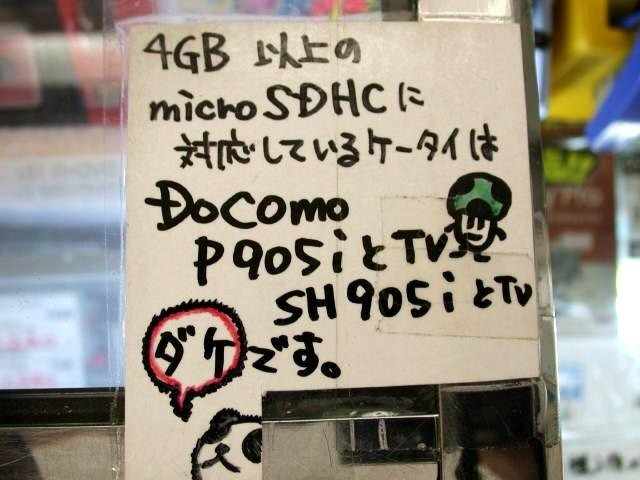 4GB 以上の
microSDHCに
対応しているケータイは
DoCoMo
P905iとTV
SH905iとTV
ダケです。